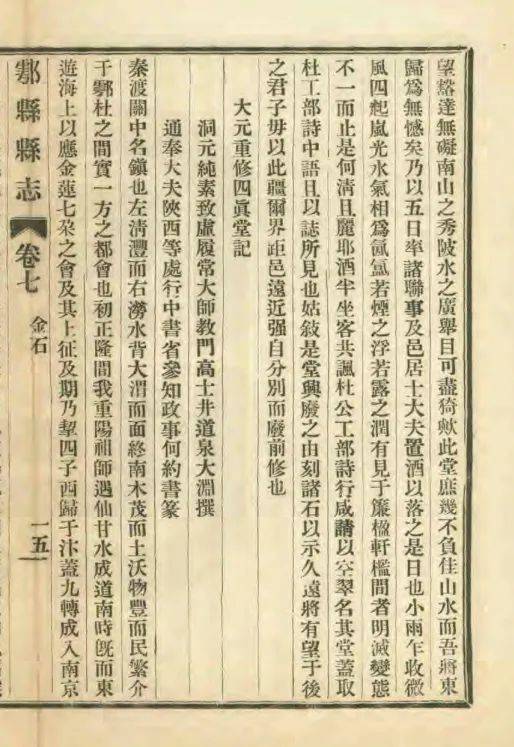 望豁達無礙南山之秀陂水之廣舉目可盡猗歟此堂庶幾不負佳山水而吾將東
歸爲無憾矣乃以五日率諸聯事及邑居士大夫置酒以落之是日也小雨乍收微
風四起嵐光水氣相爲氤氳若煙之浮若露之潤有見于簾楹軒檻間者明滅變態
不一而止是何淸且麗耶酒半坐客共諷杜公工部詩行咸請以空翠名其堂蓋取
杜工部詩中語且以誌所見也姑敍是堂興廢之由刻諸石以示久遠將有望于後
之君子毋以此疆爾界距邑遠近强自分別而廢前修也
大元重修四眞堂記
洞元純素致虛履常大師教門高士井道泉大淵撰
通奉大夫陝西等處行中書省參知政事何約書篆
秦渡關中名鎭也左淸灃而右澇水背大渭而面終南木茂而土沃物豐而民繁介
于鄠杜之間實一方之都會也初正隆間我重陽祖師遇仙甘水成道南時旣而東
遊海上以應金蓮七朶之會及其上征及期乃挈四子西歸于汴蓋九轉成入南京
鄠縣縣志
卷七
金石
一五